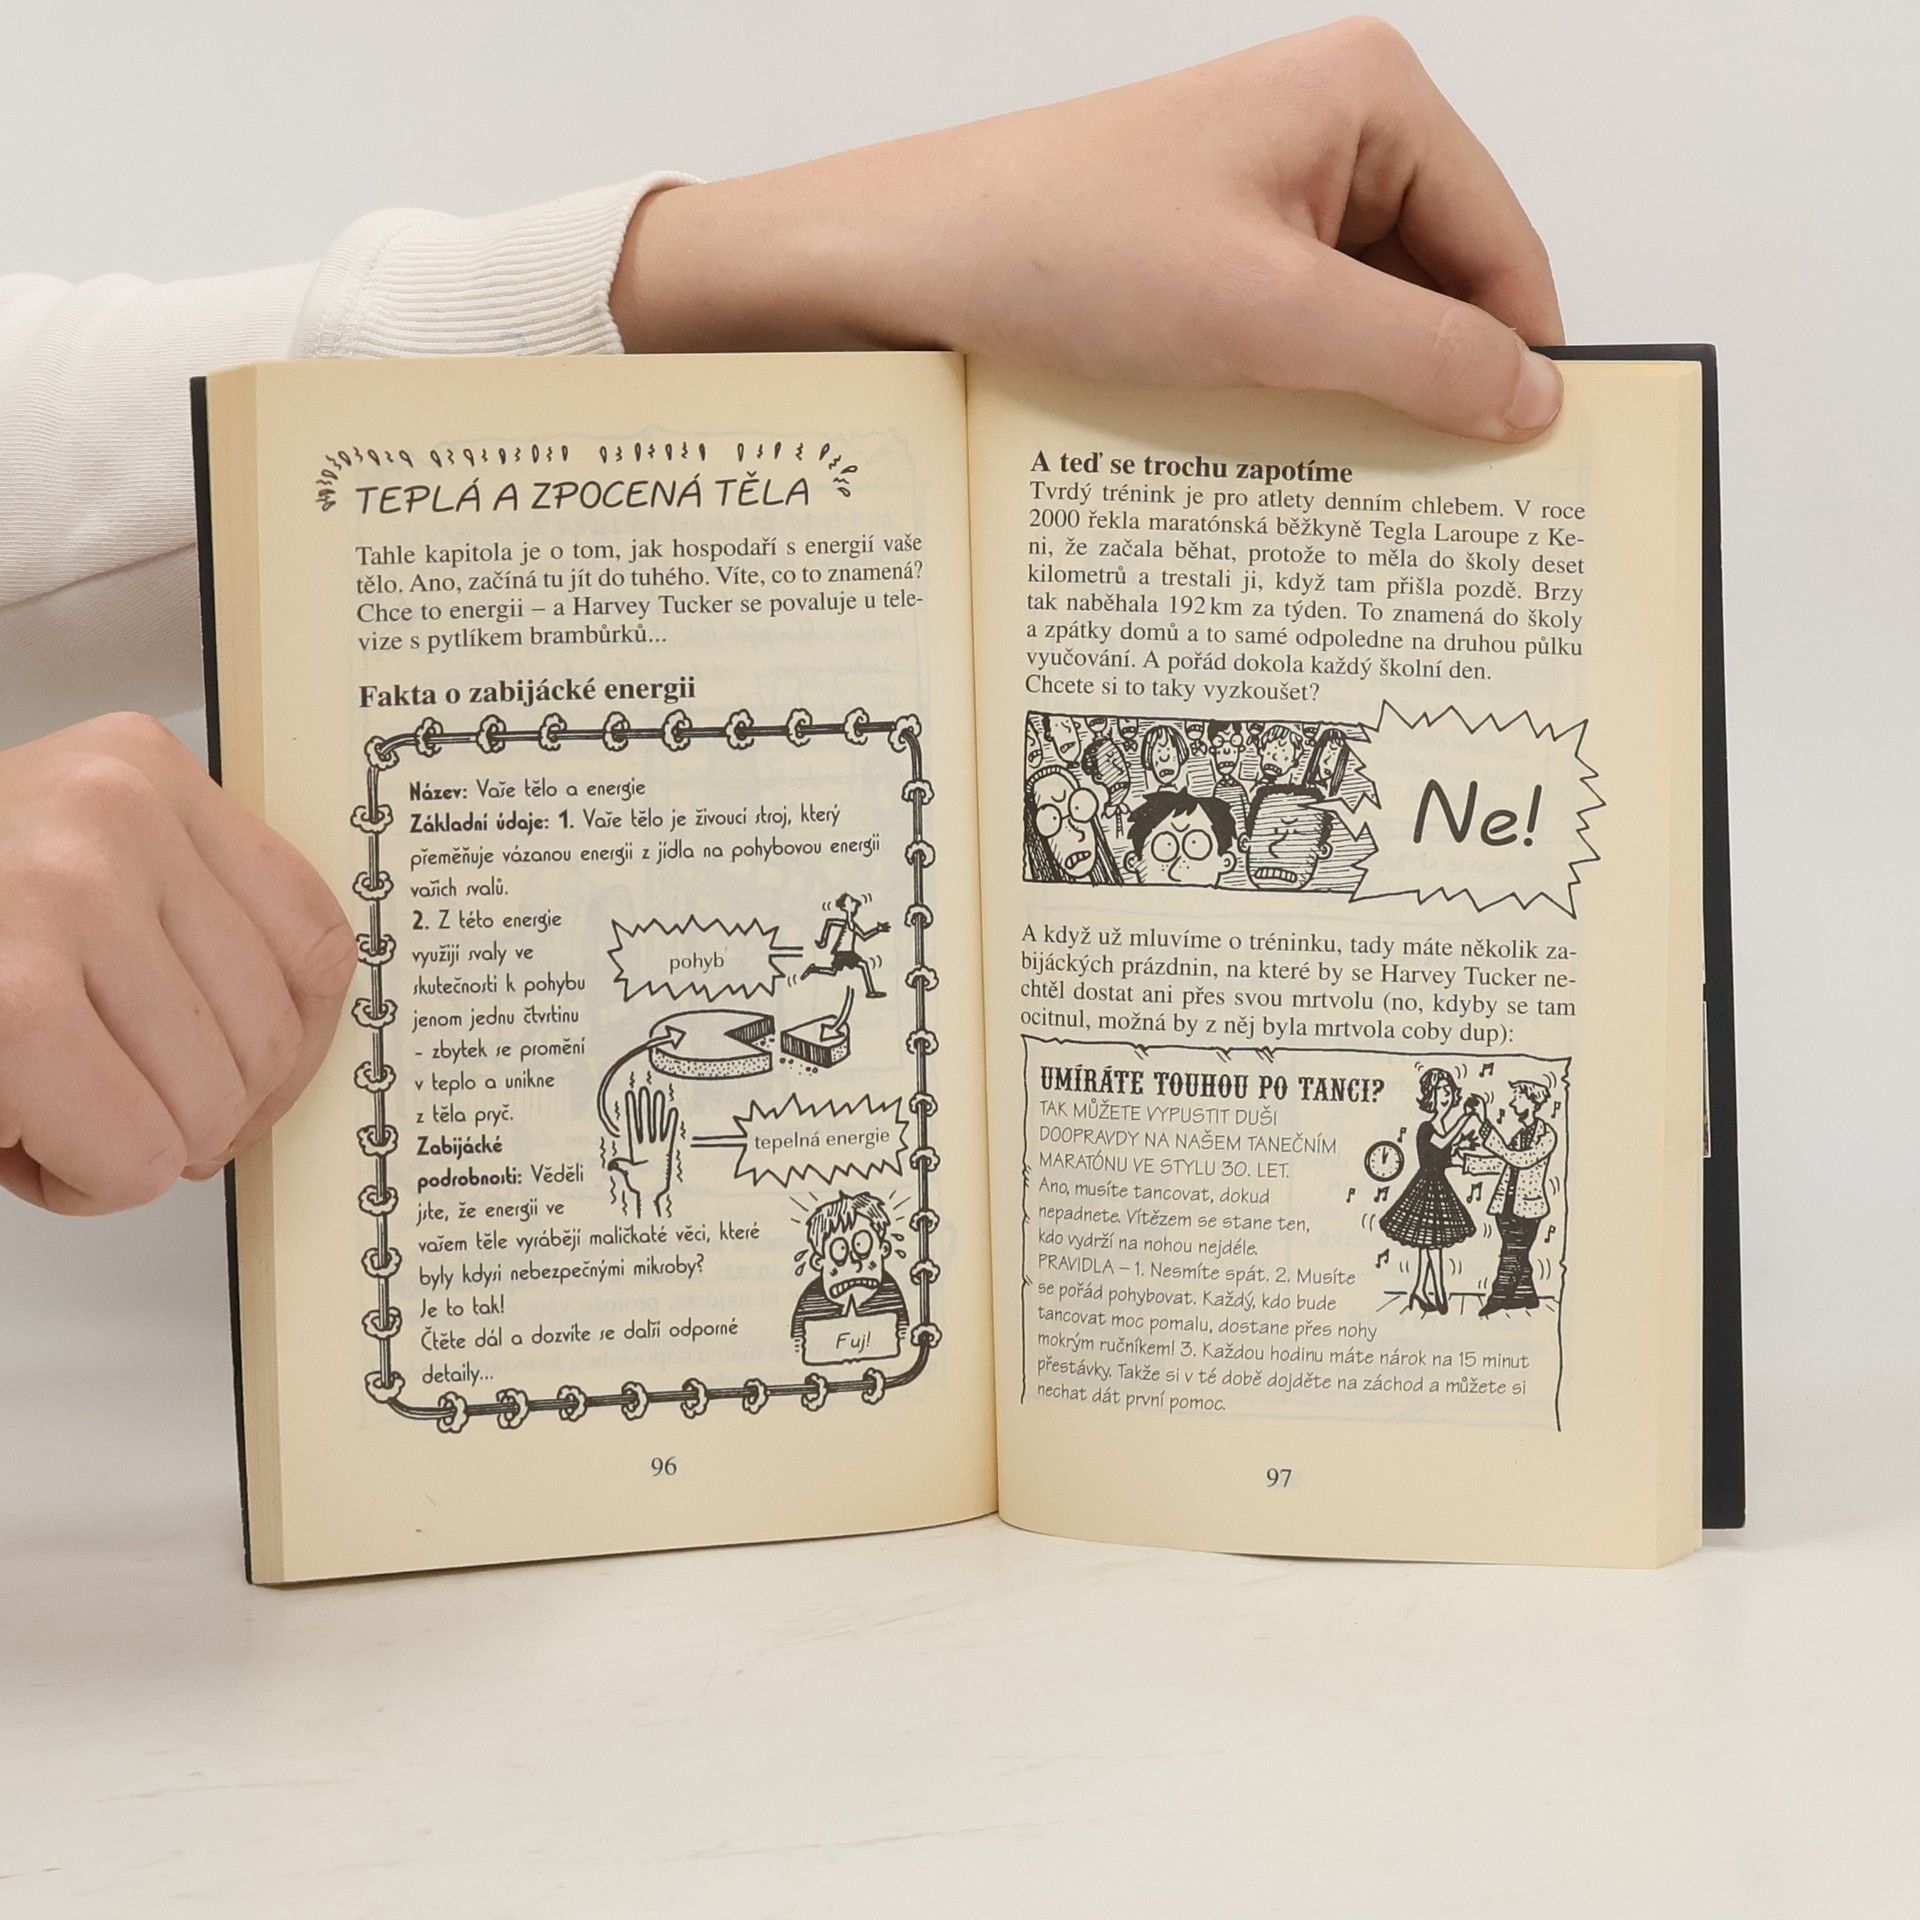 TEPLÁ A ZPOCENÁ TĚLA
Tahle kapitola je o tom, jak hospodaří s energií vaše
tělo. Ano, začíná tu jít do tuhého. Víte, co to znamená?
Chce to energii – a Harvey Tucker se povaluje u tele-
vize s pytlíkem brambůrků...
Fakta o zabijácké energii
Název: Vaše tělo a energie
Základní údaje: 1. Vaše tělo je živoucí stroj, který
přeměňuje vázanou energii z jídla na pohybovou energii
vašich svalů.
2. Z této energie
využijí svaly ve
skutečnosti k pohybu
jenom jednu čtvrtinu
– zbytek se promění
v teplo a unikne
z těla pryč.
pohyb
tepelná energie
Zabijácké
podrobnosti: Věděli
jste, že energii ve
vašem těle vyrábějí maličkaté věci, které
byly kdysi nebezpečnými mikroby?
Je to tak!
Čtěte dál a dozvíte se další odporné
detaily...
Fuj!
96
A teď se trochu zapotíme
Tvrdý trénink je pro atlety denním chlebem. V roce
2000 řekla maratónská běžkyně Tegla Laroupe z Ke-
ni, že začala běhat, protože to měla do školy deset
kilometrů a trestali ji, když tam přišla pozdě. Brzy
tak naběhala 192 km za týden. To znamená do školy
a zpátky domů a to samé odpoledne na druhou půlku
vyučování. A pořád dokola každý školní den.
Chcete si to taky vyzkoušet?
Ne!
A když už mluvíme o tréninku, tady máte několik za-
bijáckých prázdnin, na které by se Harvey Tucker ne-
chtěl dostat ani přes svou mrtvolu (no, kdyby se tam
ocitnul, možná by z něj byla mrtvola coby dup):
UMÍRÁTE TOUHOU PO TANCI?
TAK MŮŽETE VYPUSTIT DUŠI
DOOPRAVDY NA NAŠEM TANEČNÍM
MARATÓNU VE STYLU 30. LET.
Ano, musíte tancovat, dokud
nepadnete. Vítězem se stane ten,
kdo vydrží na nohou nejdéle.
PRAVIDLA – 1. Nesmíte spát. 2. Musíte
se pořád pohybovat. Každý, kdo bude
tancovat moc pomalu, dostane přes nohy
mokrým ručníkem! 3. Každou hodinu máte nárok na 15 minut
přestávky. Takže si v té době dojděte na záchod a můžete si
nechat dát první pomoc.
97